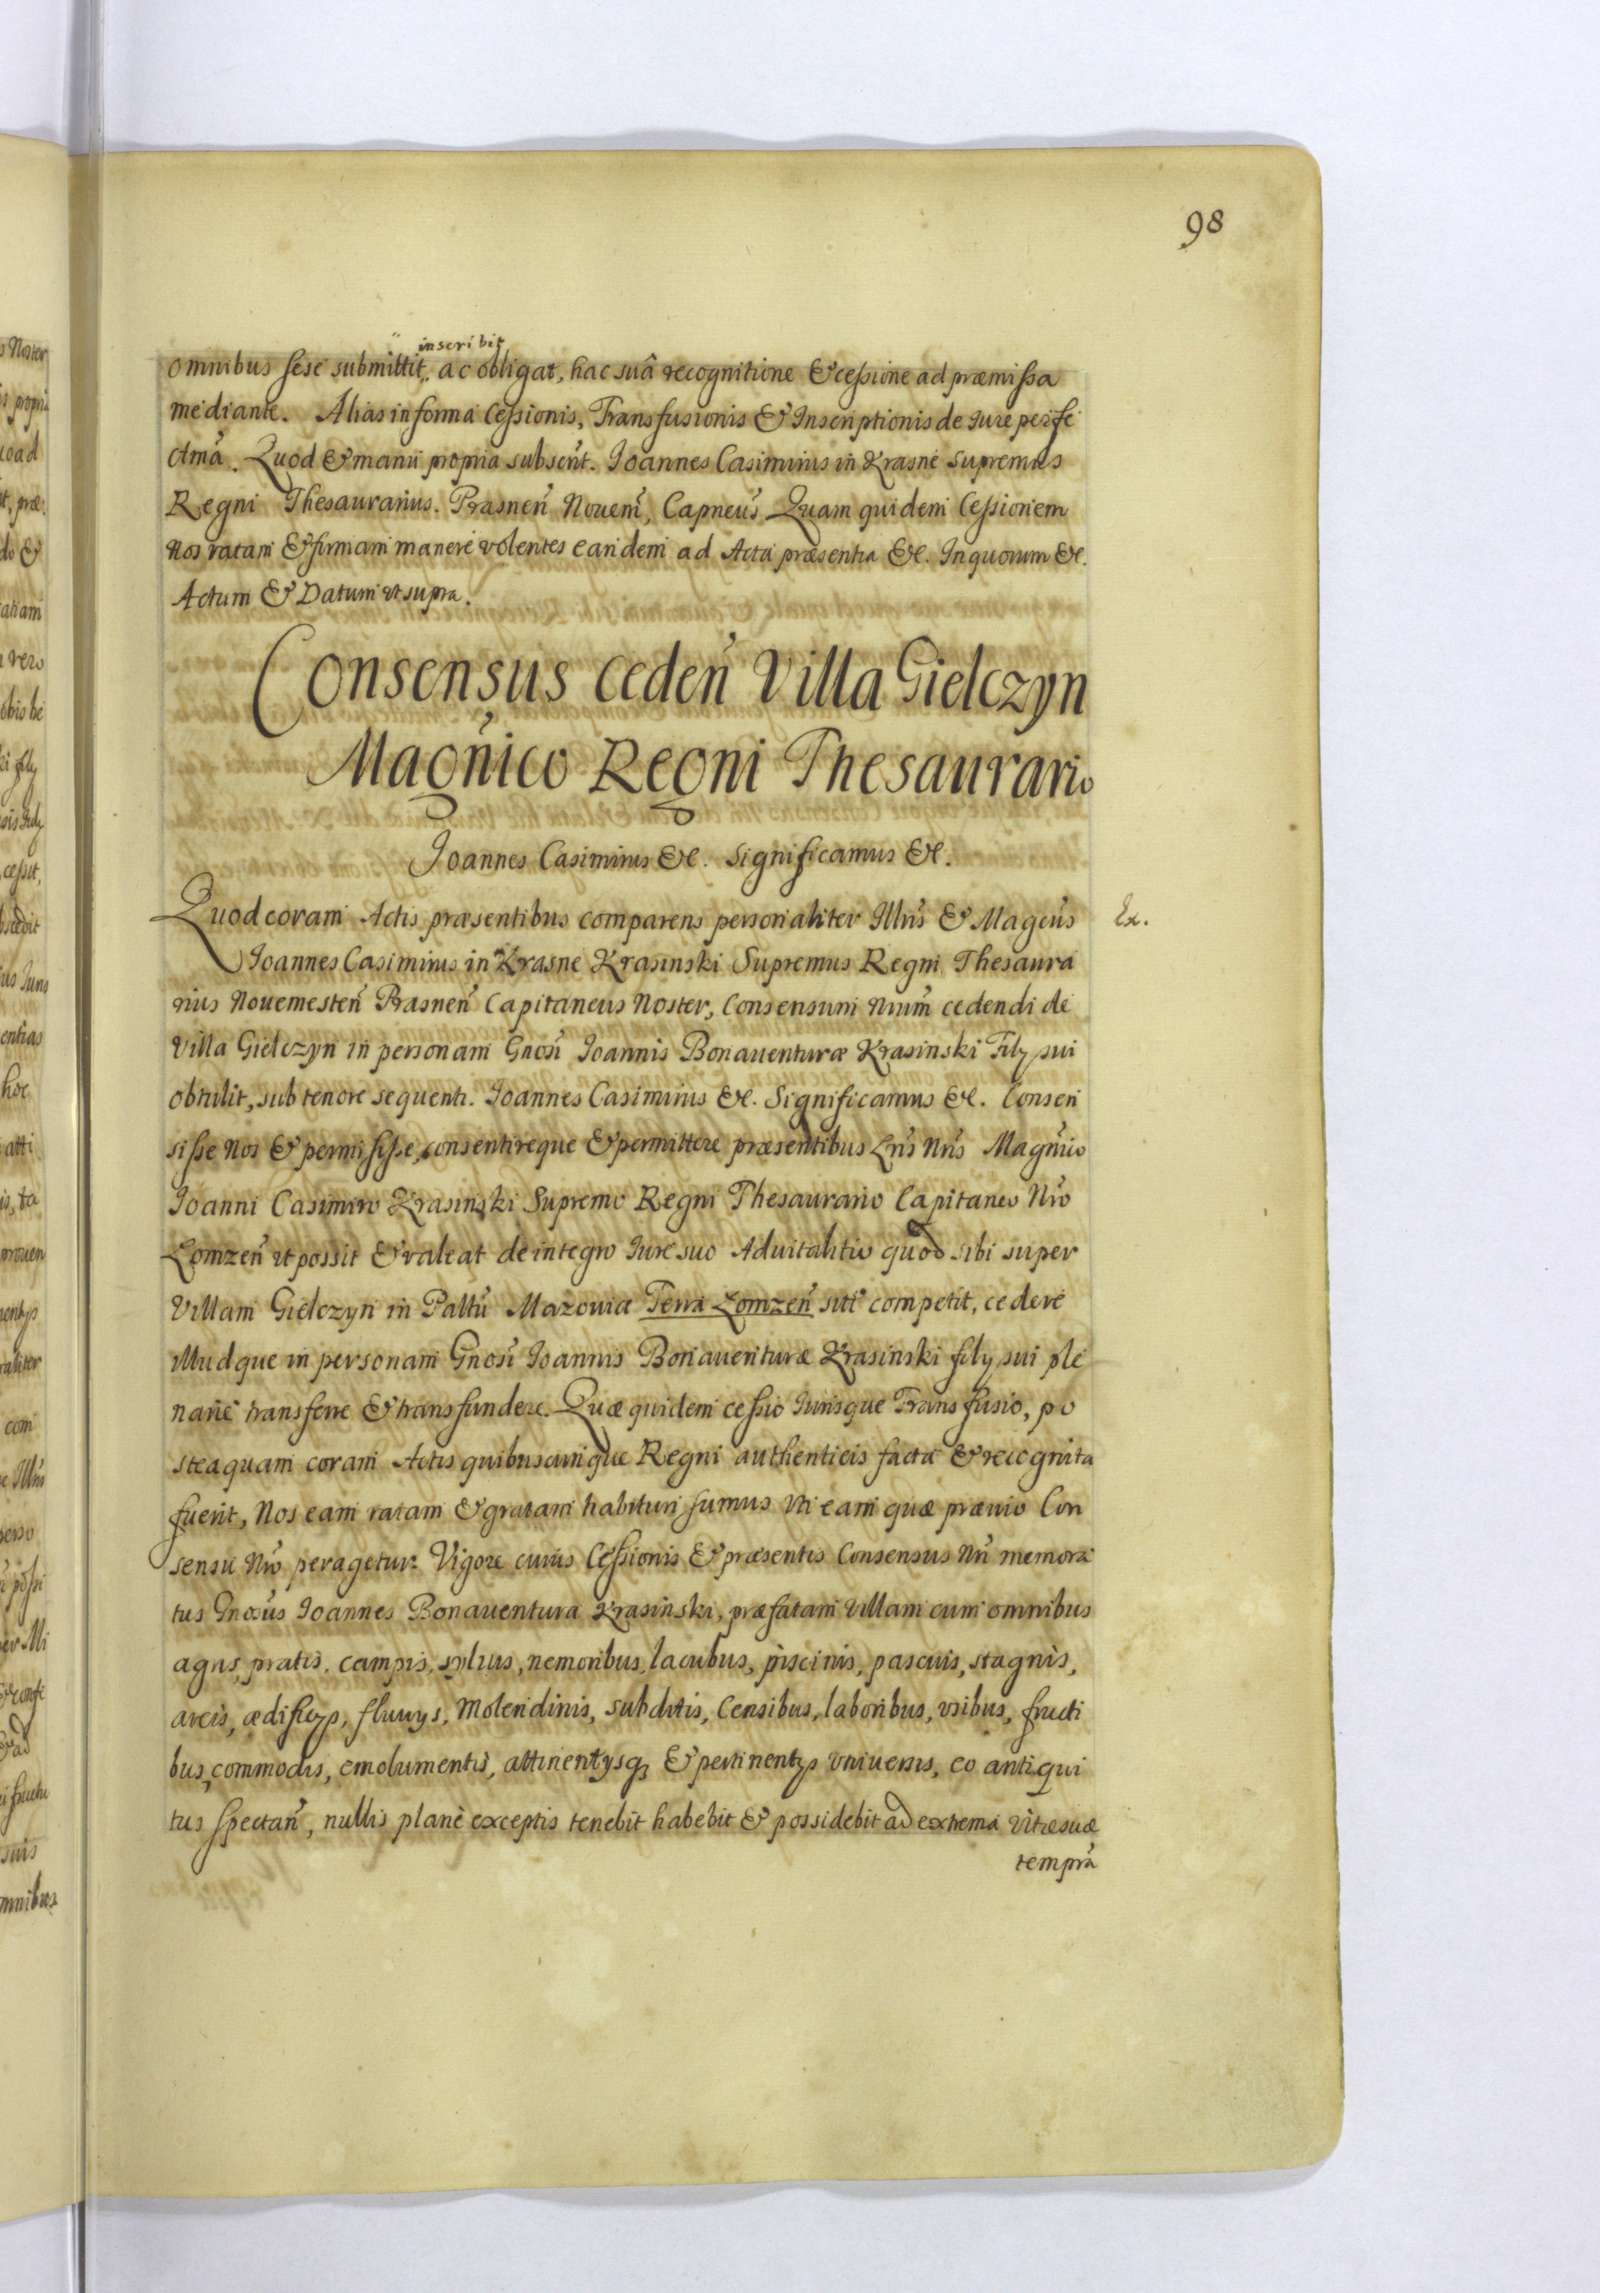 98
inscribit
omnibus sese submittit, ac obligat, hac suâ recognitione & cessione ad præmissa
mediante. Alias in forma Cessionis, Transfusionis & Inscriptionis de Iure perfe
ctmâ. Quod & manu propria subscrt. Ioannes Casimirus in Krasne Supremus
Regni Thesaurarius. Prasnen Nouem, Capneus Quam quidem Cessionem
Nos ratam & firmam manere volentes eandem ad Acta præsentia &c. In quorum &c.
Actum & Datum ut supra.
Consensus ceden Villa Gielczyn
Magnico Regni Thesaurario
Ioannes Casimirus &c. Significamus &c.
Quod coram Actis præsentibus comparens personaliter Illris & Magcus
Ex.
Ioannes Casimirus in Krasne Krasinski Supremus Regni Thesaura
rius Nouemesten Prasnen Capitaneus Noster, Consensum Nrum cedendi de
Villa Gielczyn in personam Gnosi Ioannis Bonauenturæ Krasinski Filij sui
obtulit, sub tenore sequenti. Ioannes Casimirus &c. Significamus &c. Consen
sisse Nos & permisisse, consentireque & permittere præsentibus Lris Nris Magnico
Ioanni Casimiro Krasinski Supremo Regni Thesaurario Capitaneo Nro
Lomzen ut possit & valeat de integro Iure suo Aduitalitio quod sibi super
Villam Gielczyn in Paltu Mazouiæ Terra Lomzen siti competit, cedere
illudque in personam Gnosi Ioannis Bonauenturæ Krasinski filij sui ple
narie transferre & transfundere. Quæ quidem cessio Iurisque Transfusio, po
steaquam coram Actis quibuscunque Regni authenticis facta & recognita
fuerit, Nos eam ratam & gratam habituri sumus uti eam quæ præuio Con
sensu Nro peragetur. Vigore cuius Cessionis & præsentis Consensus Nri memora
tus Gnosus Ioannes Bonauentura Krasinski, præfatam Villam cum omnibus
agris, pratis, campis, syluis, nemoribus, lacubus, piscinis, pascuis, stagnis,
areis, ædificijs, fluuijs, Molendinis, subditis, Censibus, laboribus, vsibus, fructi
bus, commodis, emolumentis, attinentijsq; & pertinentijs vniuersis, eo antiqui
tus spectan, nullis planè exceptis tenebit habebit & possidebit ad extrema vitæ suæ
tempra